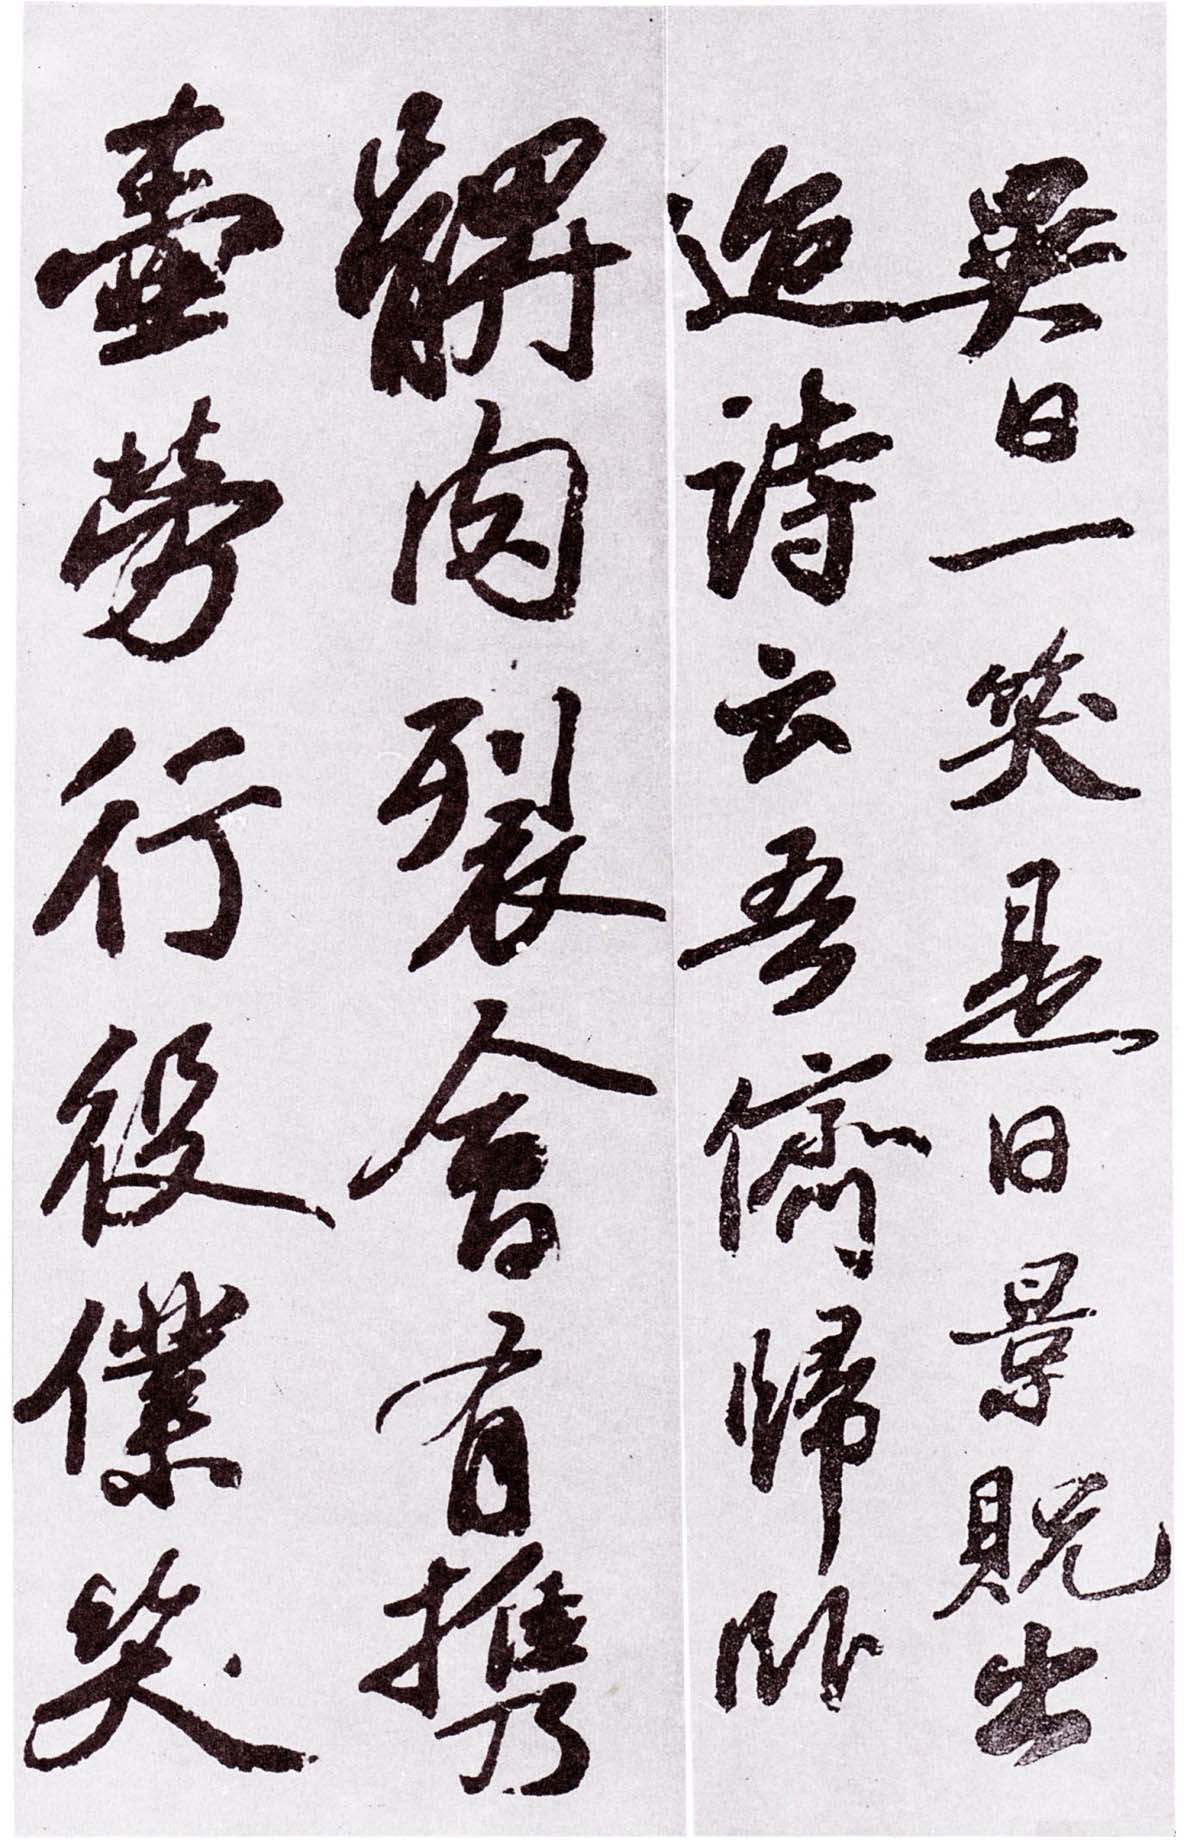 異日一笑是日景貺出
迨詩云吾儕歸卧
髀肉裂會有携
壺勞行役僕笑